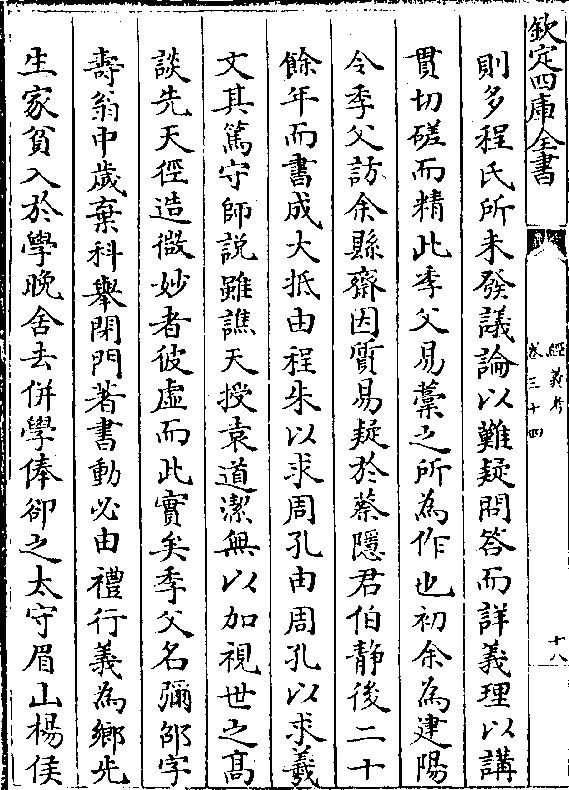 欽定四庫全書
經義考
卷三十四
十八
則多程氏所未發議論以難疑問答而詳義理以講
貫切磋而精此季父易藁之所為作也初余為建陽
令季父訪余縣齋因質易疑於蔡隱君伯静後二十
餘年而書成大抵由程朱以求周孔由周孔以求羲
文其篤守師説雖譙天授袁道潔無以加視世之髙
談先天徑造微妙者彼虛而此實矣季父名彌邵字
壽翁中歲棄科舉閉門著書動必由禮行義為鄉先
生家貧入於學晚舍去併學俸卻之太守眉山楊侯